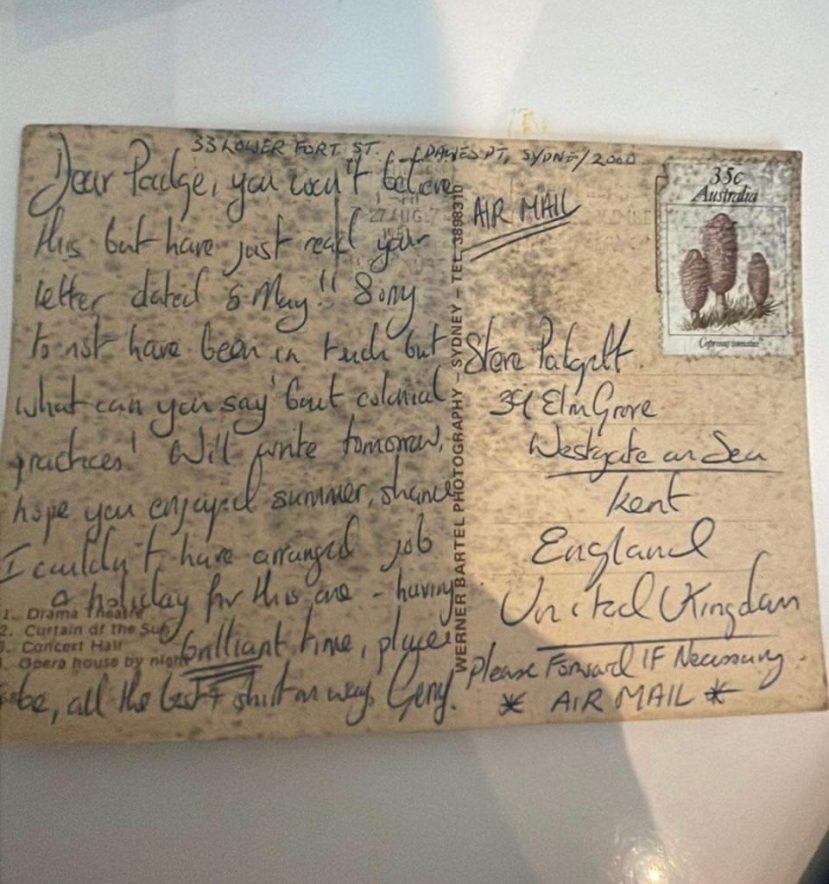 33 LOWER FORT ST. DAWES PT, SYDNEY/2000
Dear Padge, you won't believe
this but have just read your
letter dated 6 May!! Sorry
to not have been in touch but
what can you say 'bout colonial
practices! Will write tomorrow,
hope you enjoyed summer, shame
I couldn't have arranged job
a holiday for this one - having
brilliant time, place
be, all the best + shirt on way. Gerry.
1. Drama Theatre
2. Curtain of the Sun
3. Concert Hall
4. Opera house by night
WERNER BARTEL PHOTOGRAPHY – SYDNEY – TEL. 3898310
27 AUG
AIR MAIL
35c
Australia
Coprinus comatus
Steve Padgett.
39 Elm Grove
Westgate on Sea
Kent
England
United Kingdom
Please Forward IF Necessary.
* AIR MAIL *